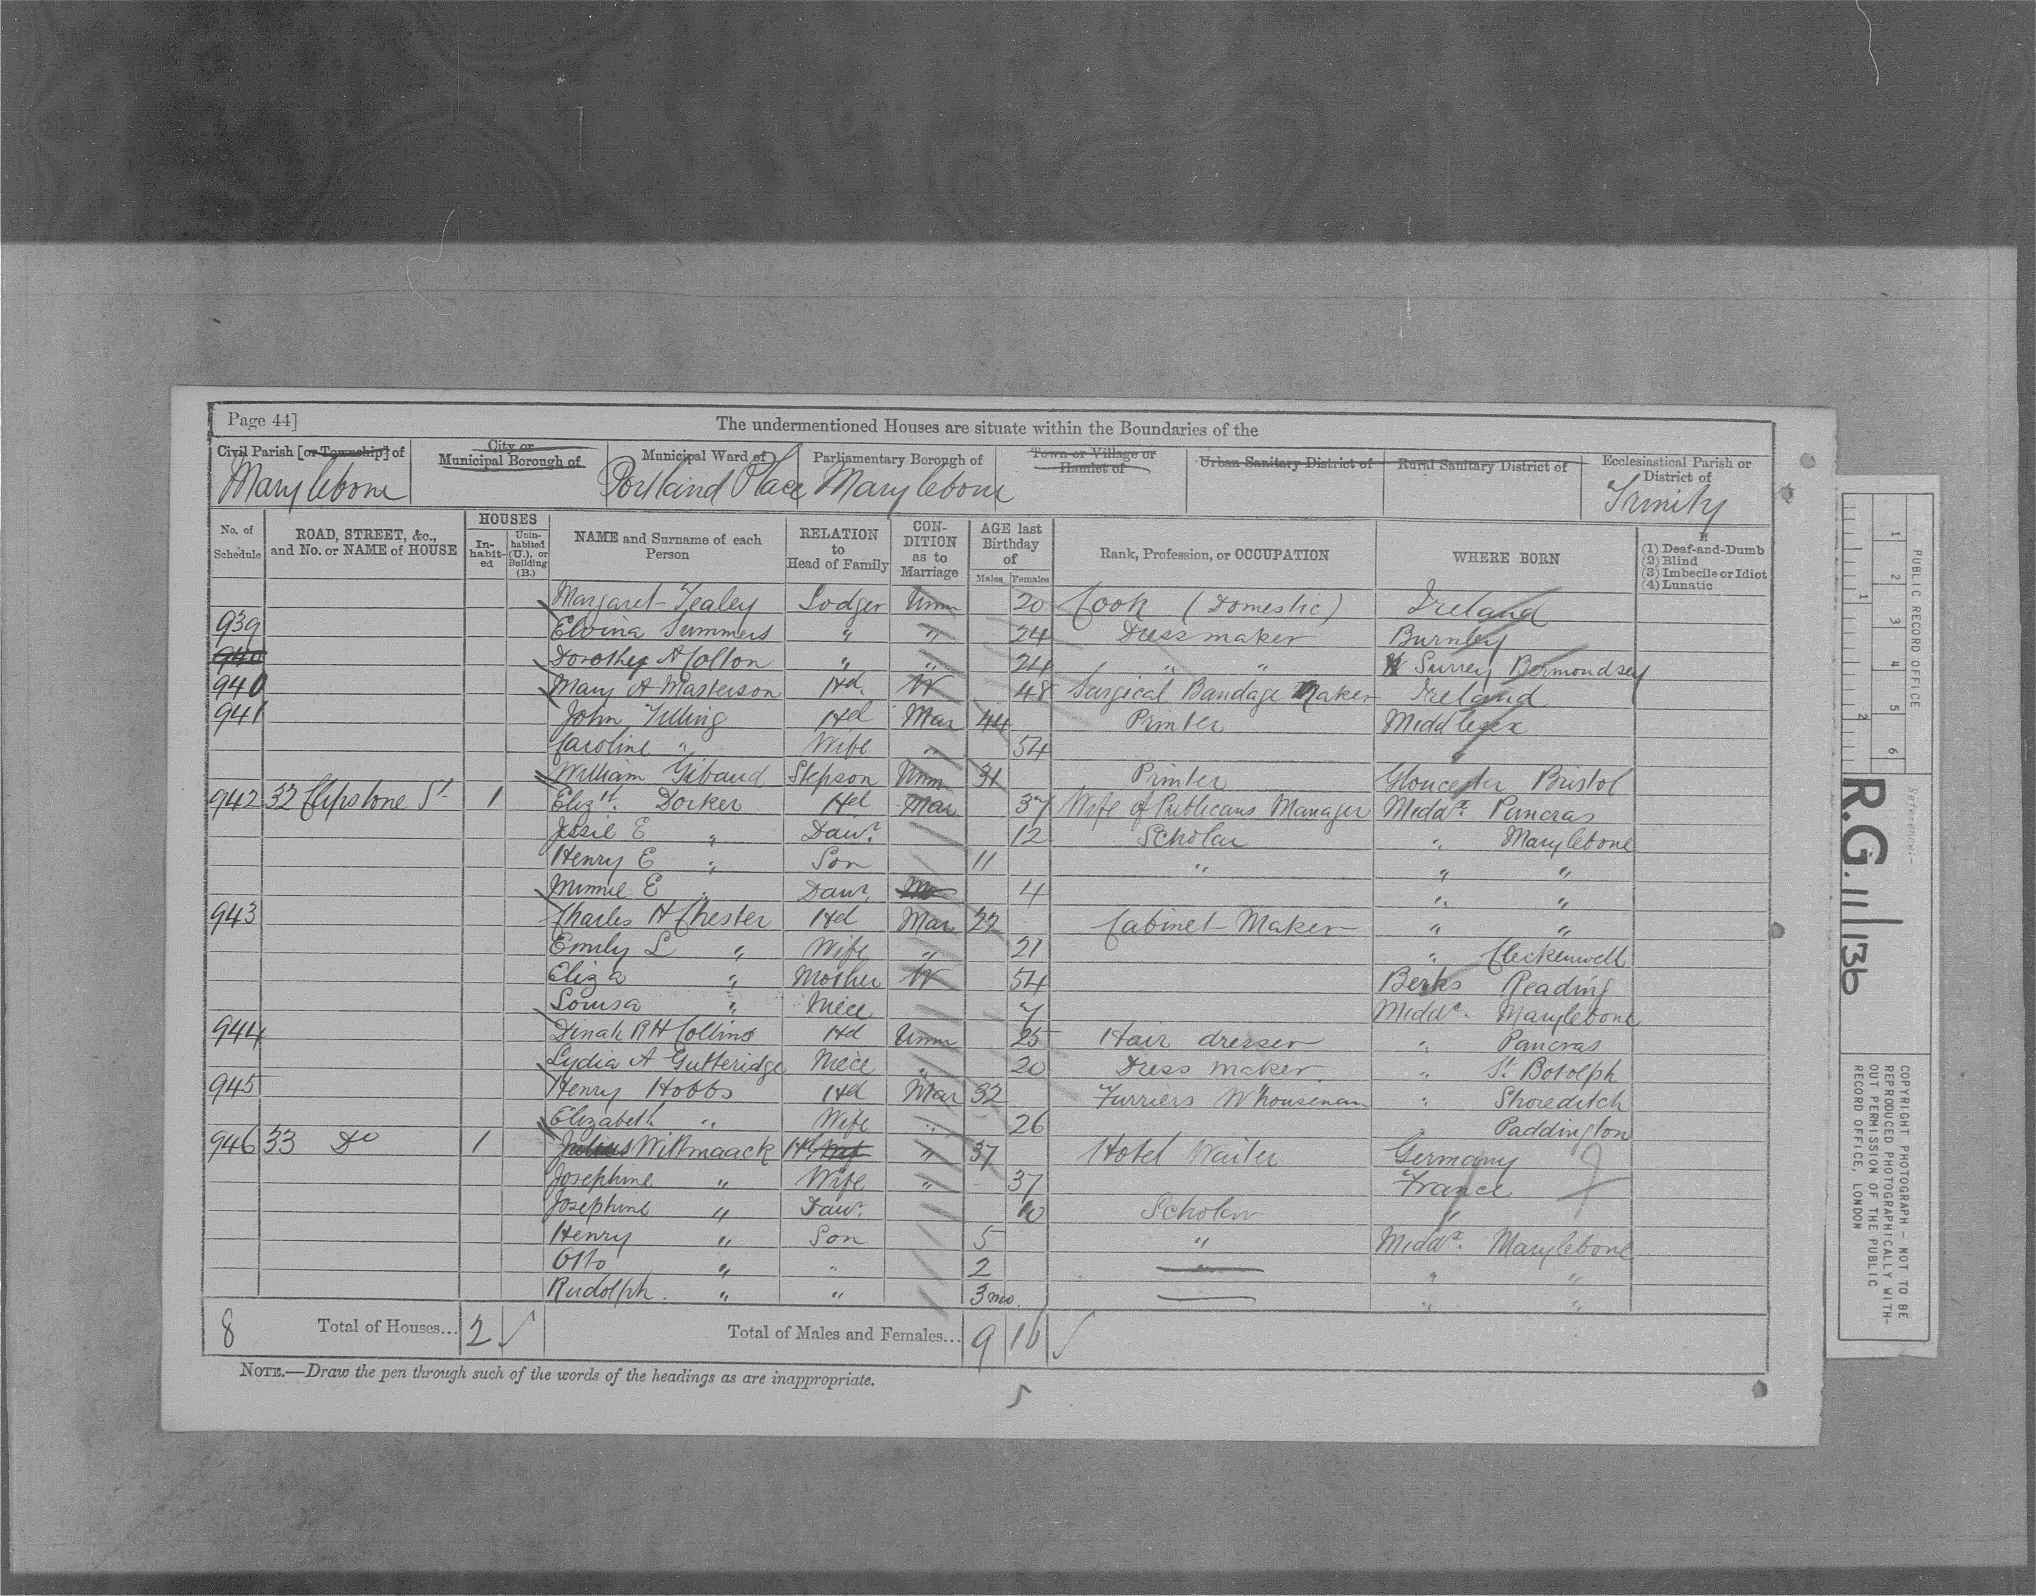 Page 44]
The undermentioned Houses are situate within the Boundaries of the
Civil Parish [or Township] of
City or
Municipal Borough of
Municipal Ward of
Parliamentary Borough of
Town or Village or
Hamlet of
Urban Sanitary District of
Rural Sanitary District of
Ecclesiastical Parish or
District of
Marylebone Portland Place Marylebone Trinity
No. of
Schedule
ROAD, STREET, &c.,
and No. or NAME of HOUSE
HOUSES
In-
habit-
ed
Unin-
habited
(U.), or
Building
(B.)
NAME and Surname of each
Person
RELATION
to
Head of Family
CON-
DITION
as to
Marriage
AGE last
Birthday
of
Males Females
Rank, Profession, or OCCUPATION
WHERE BORN
If
(1) Deaf-and-Dumb
(2) Blind
(3) Imbecile or Idiot
(4) Lunatic
Margaret Lodger Unm 20 Cook (Domestic) Ireland
939 Elvina Summers " " 24 Dress maker Burnley
940 Dorothey A Colton " " 24 " " Surrey Bermondsey
940 Mary A Masterson Hd W 48 Surgical Bandage Maker Ireland
941 John Tilling Hd Mar 44 Printer Middlesex
Caroline " Wife " 54 "
William Gibaud Stepson Unm 31 Printer Gloucester Bristol
942 32 Clipstone St 1 Elizth. Dorker Hd Mar 37 Wife of Publicans Manager Middx. Pancras
Jessie E " Daur. 12 Scholar " Marylebone
Henry E " Son 11 " " "
Minnie E " Daur. 4 " "
943 Charles H Chester Hd Mar 22 Cabinet Maker " "
Emily L " Wife " 21 " Clerkenwell
Eliza " Mother W 54 Berks Reading
Louisa " Niece 7 Middx. Marylebone
944 Dinah R H Collins Hd Unm 25 Hair dresser " Pancras
Lydia A Gutteridge Niece " 20 Dress maker " St. Botolph
945 Henry Hobbs Hd Mar 32 Furriers Whouseman " Shoreditch
Elizabeth " Wife " 26 " Paddington
946 33 Do 1 Julius Wittmaack Hd " 37 Hotel Waiter Germany
Josephine " Wife " 37 France
Josephine " Daur. 10 Scholar "
Henry " Son 5 " Middx. Marylebone
Otto " " 2 " " "
Rudolph " " 3 mo. " "
8 Total of Houses... 2 Total of Males and Females... 9 16
NOTE.—Draw the pen through such of the words of the headings as are inappropriate.
5
1 2 3 4 5 6
1 2
PUBLIC RECORD OFFICE
Reference:-
R.G. 11 / 136
COPYRIGHT PHOTOGRAPH - NOT TO BE
REPRODUCED PHOTOGRAPHICALLY WITH-
OUT PERMISSION OF THE PUBLIC
RECORD OFFICE, LONDON